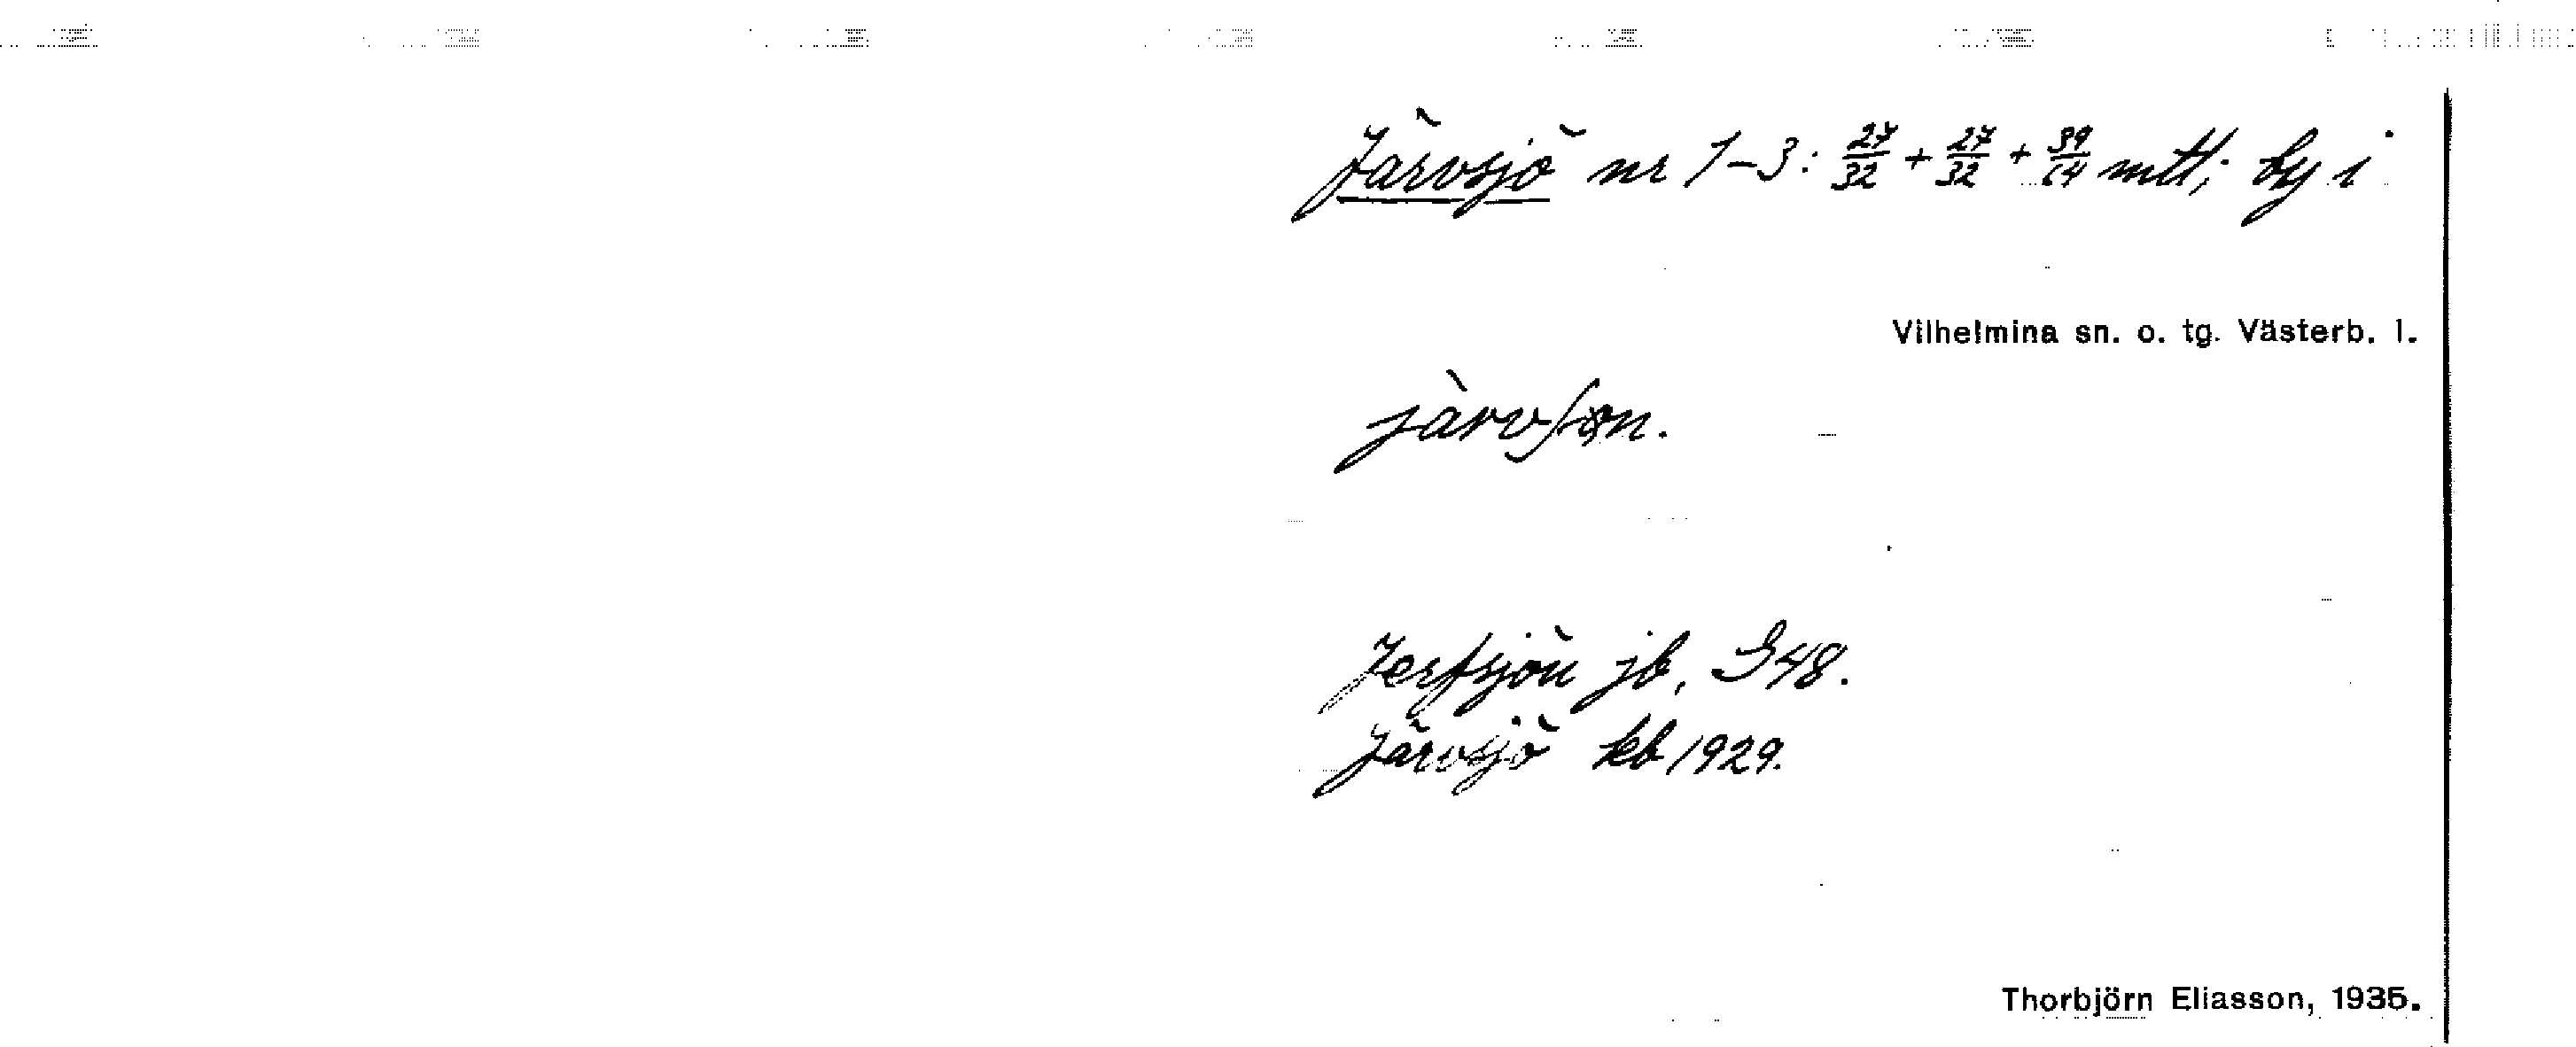 Järvsjö nr 1-3: 27/32 + 27/32 + 39/64 mtl; by i
Vilhelmina sn. o. tg. Västerb. l.
Jerfsjön jb, S48.
Järvsjö kb 1929.
Thorbjörn Eliasson, 1935.